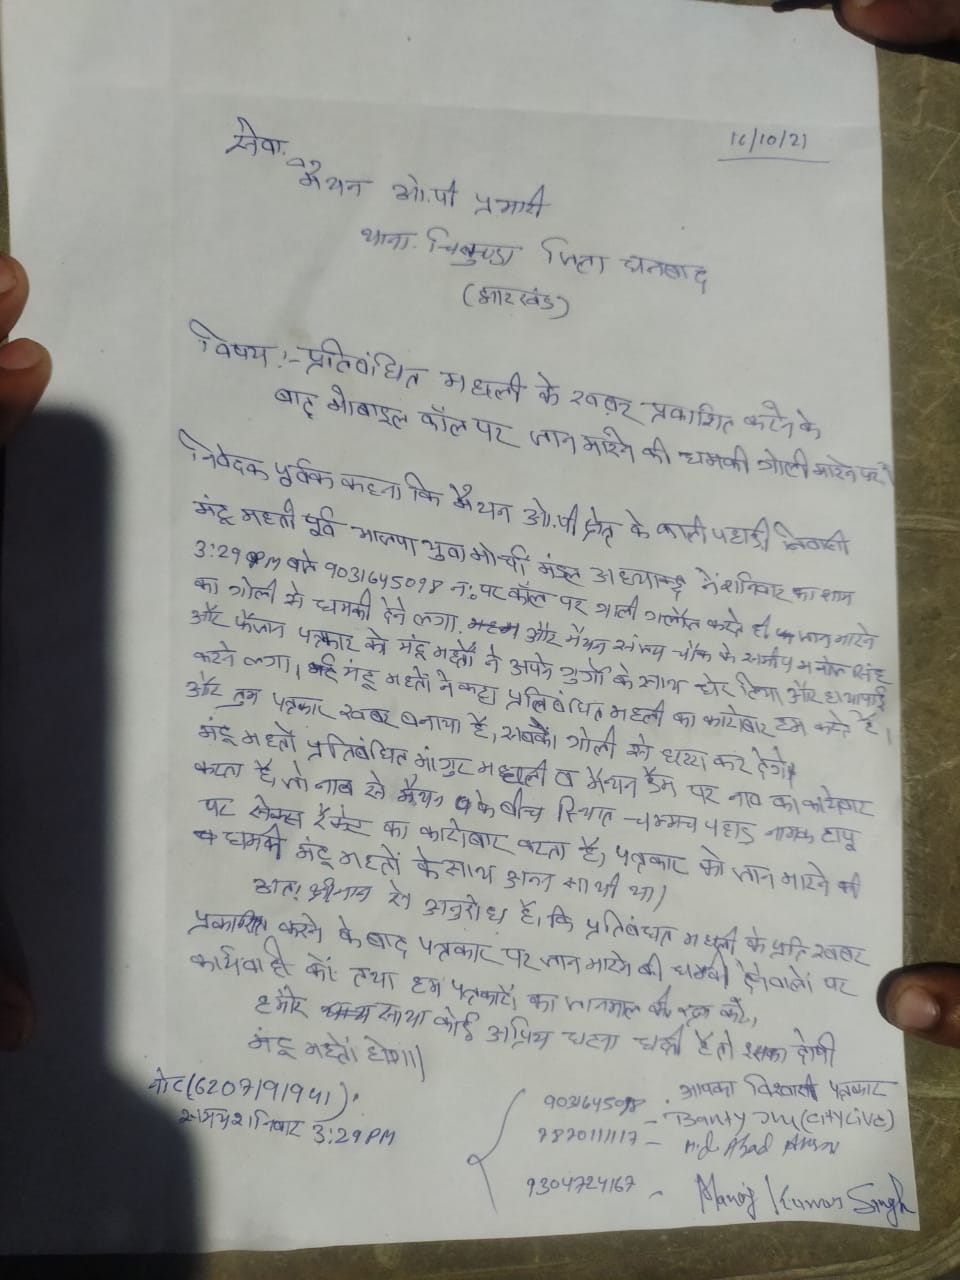 16/10/21
सेवा.
मैथन ओ.पी प्रभारी
थाना. चिरकुण्डा जिला धनबाद
(झारखंड)
विषय:- प्रतिबंधित मछली के खबर प्रकाशित करने के
बाद मोबाइल कॉल पर जान मारने की धमकी गोली मारने पर
निवेदक पूर्वक कहना कि मैथन ओ.पी क्षेत्र के काली पहाड़ी निवासी
मंटू महतो पूर्व भाजपा युवा मोर्चा मंडल अध्यक्ष ने शनिवार का शाम
3:29 PM बजे 9031645098 नं. पर कॉल पर गाली गलौज करते हुए जान मारने
का गोली से धमकी देने लगा. और मैथन संजय चौक के समीप मनोज सिंह
और फैजान पत्रकार को मंटू महतो ने अपने गुर्गो के साथ घेर लिया और हाथापाई
करने लगा। मंटू महतो ने कहा प्रतिबंधित मछली का कारोबार हम करते हैं।
और तुम पत्रकार खबर बनाया है, सबको गोली से हत्या कर देंगे।
मंटू महतो प्रतिबंधित मांगुर मछली व मैथन डैम पर नाव का कारोबार
करता है, जो नाव से मैथन के बीच स्थित चम्मच पहाड़ नामक टापू
पर सेक्स रैकेट का कारोबार करता है, पत्रकार को जान मारने की
धमकी मंटू महतो के साथ अन्य साथी था।
अतः श्रीमान से अनुरोध है। कि प्रतिबंधित मछली के प्रति खबर
प्रकाशित करने के बाद पत्रकार पर जान मारने की धमकी देनेवालों पर
कार्यवाही करें। तथा हम पत्रकारों का जानमाल की रक्षा करें,
हमारे साथ कोई अप्रिय घटना घटती है तो इसका दोषी
मंटू महतो होगा।
नोट (6207191941)
समय शनिवार 3:29 PM
आपका विश्वासी पत्रकार
9031645098 - (CITY LIVE)
9820111117 - Md. Azad
9304724167 - Manoj Kumar Singh